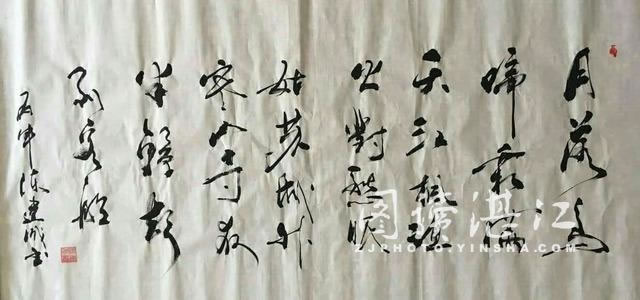 月落烏
啼霜滿
天江楓漁
火對愁眠
姑蘇城外
寒山寺夜
半鐘聲
到客船
丙申陈建成书
湛江
ZJPHOTO.YINSHA.COM